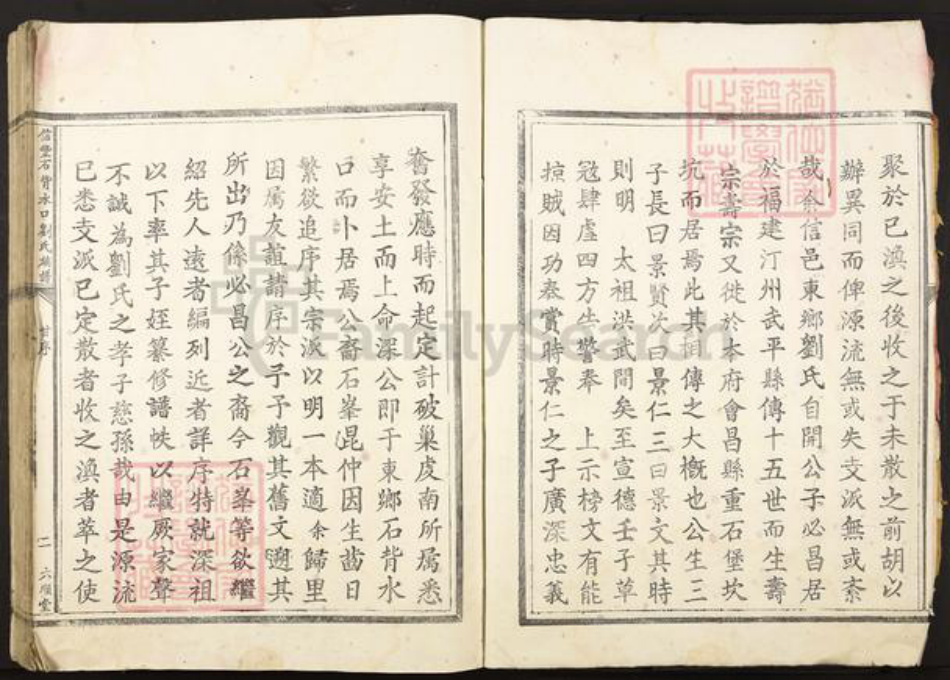 聚於已渙之後收之于未散之前胡以
辦異同而俾源流無或失支派無或紊
哉余信邑東鄉劉氏自開公子必昌居
於福建汀州武平縣傳十五世而生壽
宗壽宗又徙於本府會昌縣重石堡坎
坑而居焉此其相傳之大概也公生三
子長曰景賢次曰景仁三曰景文其時
則明 太祖洪武間矣至宣德壬子草
冦肆虛四方生警奉 上示榜文有能
掠賊因功奏賞時景仁之子廣深忠義
奮發應時而起定計破巢虔南所屬悉
享安土而上命深公即于東鄉石背水
口而卜居焉公裔石峯昆仲因生齒日
繁欲追序其宗派以明一本適余歸里
因属友誼請序於予予觀其舊文遡其
所出乃係必昌公之裔今石峯等欲繼
紹先人遠者編列近者詳序特就深祖
以下率其子姪纂修譜帙以繼厥家聲
不誠為劉氏之孝子慈孫哉由是源流
已悉支派已定散者收之渙者萃之使
信豐石背水口劉氏族譜
甘序
二 六順堂
FamilySearch